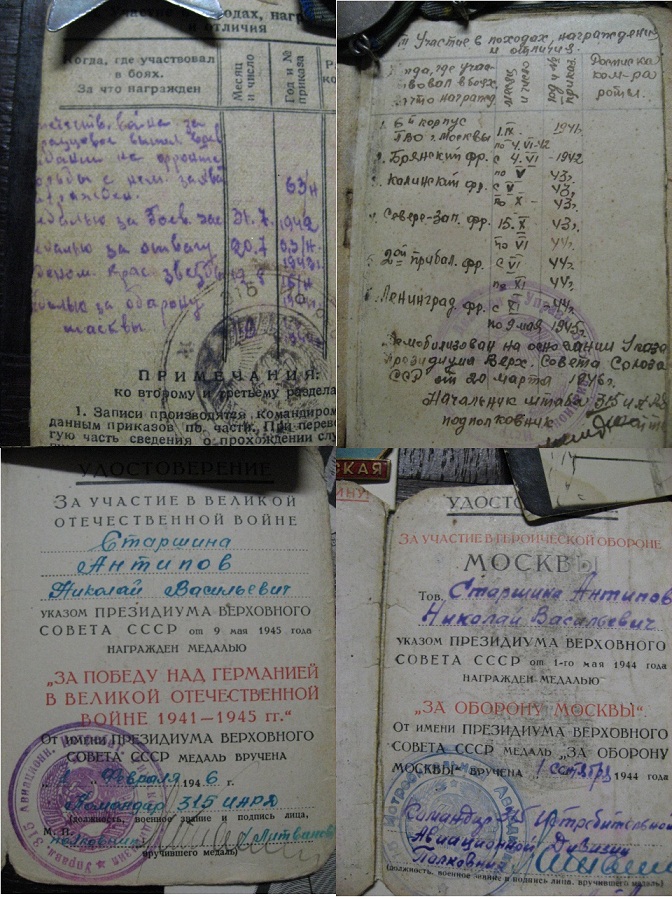 Участие в походах, наг
и отличия
Когда, где участвовал
в боях.
За что награжден
Месяц
и число
Год и №
приказа
борьбы с нем.
63/н
медалью за боев. зас
31.7.
1942
за отвагу
20.7
Крас. Звезды
за оборону
Москвы
ПРИМЕЧАНИЯ:
ко второму и третьему раздела
1. Записи производятся командиром
данным приказов по части. При перево
гую часть сведения о прохождении слу
III Участие в походах, награжден
и отличия.
Когда, где учас-
твовал в боях,
за что награжд.
месяц
и число
год и №
приказа
Роспись ка
ком-ра
роты.
1. 6й корпус
ПВО г. Москвы
1.IX.
1941.
по 4.VI-42
2. Брянский фр.
с 4.VI
-1942
по V
43г.
3. Калинский фр.
с V
43г.
по X -
43г.
4. Северо-Зап. фр.
15.X
43г.
по VI
44г.
5. 2ой прибал. фр.
с VI
44г.
по XI
44г.
6. Ленинград. фр.
с XI
44г.
по 9 мая 1945г.
Демобилизован на основании Указа
Президиума Верх. Совета Союза
ССР от 20 марта 1946г.
Начальник штаба 315 ИАД
подполковник
УДОСТОВЕРЕНИЕ
ЗА УЧАСТИЕ В ВЕЛИКОЙ
ОТЕЧЕСТВЕННОЙ ВОЙНЕ
Старшина
Антипов
Николай Васильевич
УКАЗОМ ПРЕЗИДИУМА ВЕРХОВНОГО
СОВЕТА СССР от 9 мая 1945 года
НАГРАЖДЕН МЕДАЛЬЮ
„ЗА ПОБЕДУ НАД ГЕРМАНИЕЙ
В ВЕЛИКОЙ ОТЕЧЕСТВЕННОЙ
ВОЙНЕ 1941—1945 гг.“
От имени ПРЕЗИДИУМА ВЕРХОВНОГО
СОВЕТА СССР МЕДАЛЬ ВРУЧЕНА
„1“ Февраля 1946 г.
Командир 315 ИАД
(должность, военное звание и подпись лица,
М. П.
полковник /Литвинов
вручившего медаль)
СКАЯ
УДОСТО
ЗА УЧАСТИЕ В ГЕРОИЧЕСКОЙ ОБОРОНЕ
МОСКВЫ
Тов. Старшина Антипов
Николай Васильевич
УКАЗОМ ПРЕЗИДИУМА ВЕРХОВНОГО
СОВЕТА СССР от 1-го мая 1944 года
НАГРАЖДЕН МЕДАЛЬЮ
„ЗА ОБОРОНУ МОСКВЫ“.
От имени ПРЕЗИДИУМА ВЕРХОВНОГО
СОВЕТА СССР МЕДАЛЬ „ЗА ОБОРОНУ
МОСКВЫ“ ВРУЧЕНА 1 сентября 1944 года
Командир 315 Истребительной
Авиационной Дивизии
Полковник
(должность, военное звание и подпись лица, вручившего медаль)